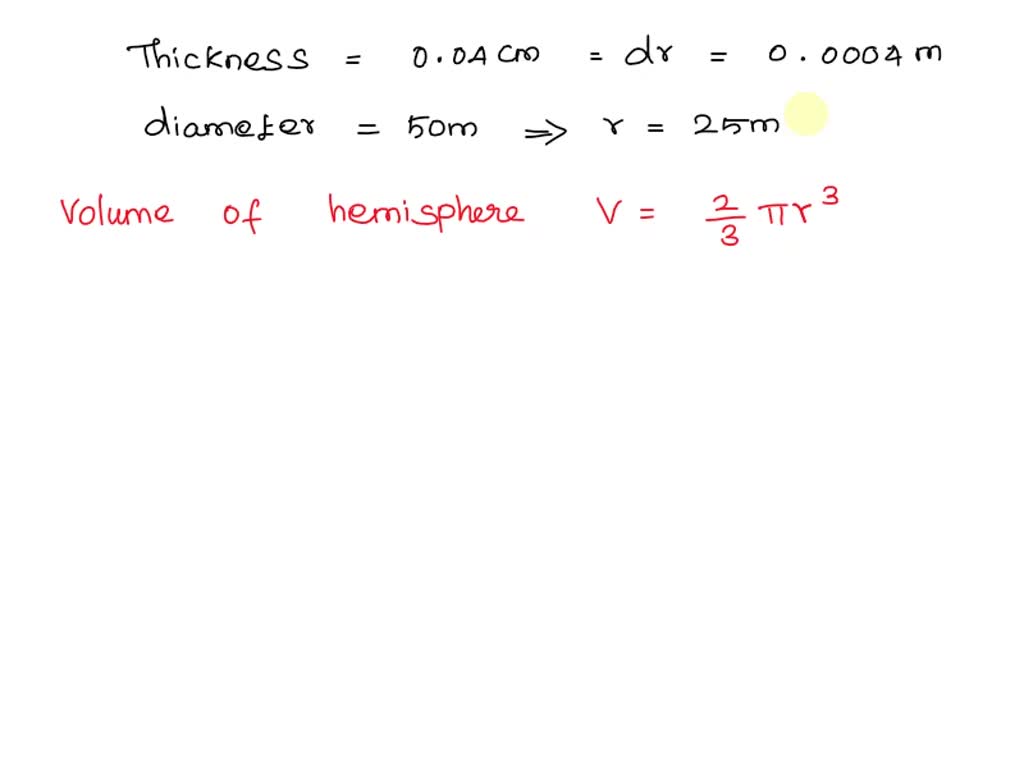 Thickness = 0.04 cm = dr = 0.0004 m
diameter = 50m ⇒ r = 25m
Volume of hemisphere V = 2/3 πr³